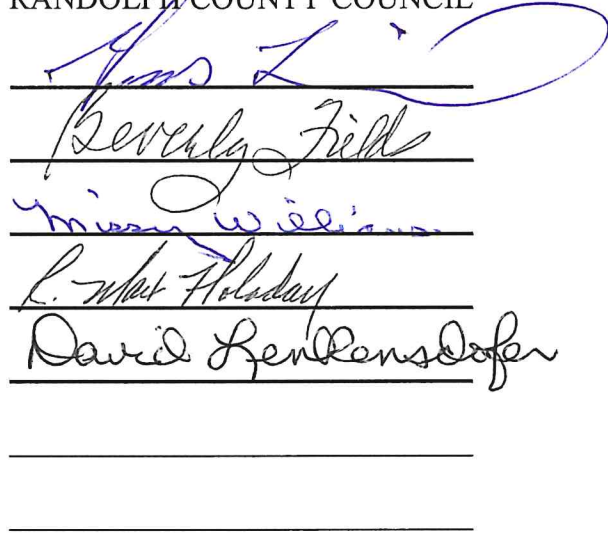 RANDOLPH COUNTY COUNCIL
Beverly Fields
Missy Williams
R. Holaday
David Lenkensdofer